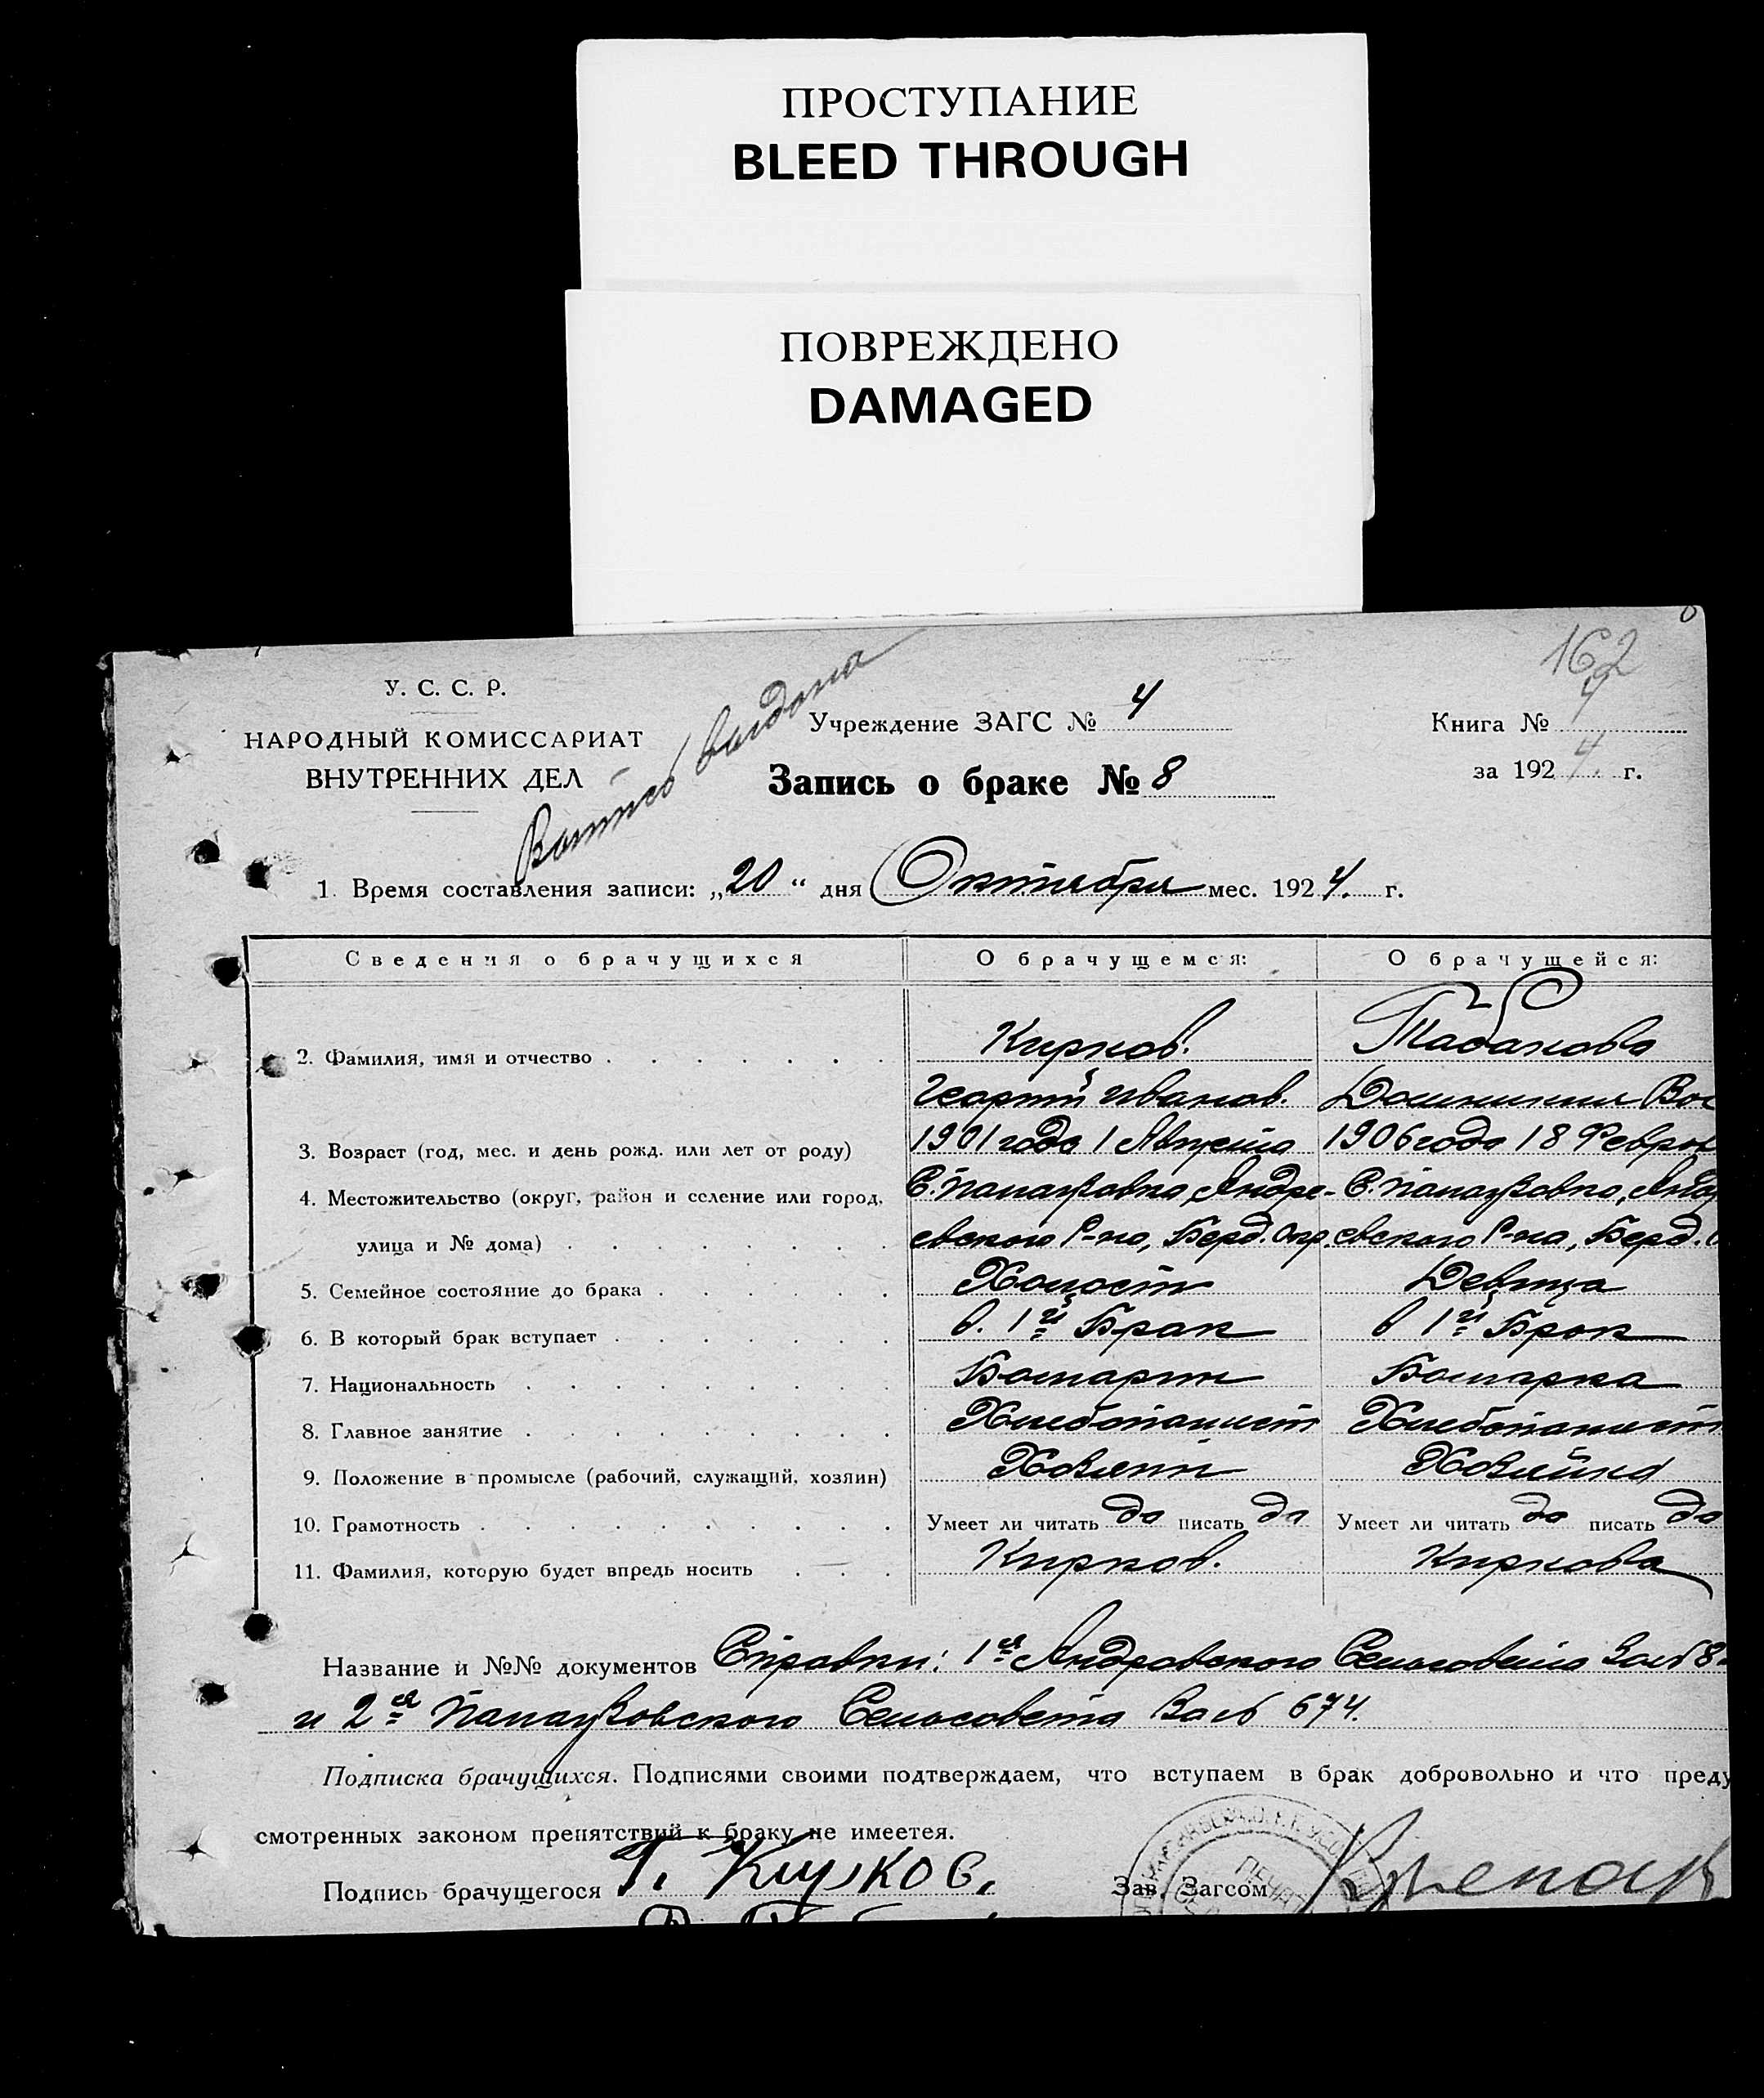 ПРОСТУПАНИЕ
BLEED THROUGH
ПОВРЕЖДЕНО
DAMAGED
162
У. С. С. Р.
НАРОДНЫЙ КОМИССАРИАТ
ВНУТРЕННИХ ДЕЛ
выдана
Учреждение ЗАГС № 4
Запись о браке № 8
Книга № 4
за 1924. г.
1. Время составления записи: „20“ дня Октября мес. 1924. г.
Сведения о брачущихся О брачущемся: О брачущейся:
2. Фамилия, имя и отчество Кирков. Табакова
Георгий Иванов. Домникия Вас
3. Возраст (год, мес. и день рожд. или лет от роду) 1901 года 1 Августа 1906 года 18 Феврал
4. Местожительство (округ, район и селение или город, С. Палаузовка, Андре- С. Палаузовка, Андр
улица и № дома) евского Р-на, Берд. Окр. евского Р-на, Берд. О
5. Семейное состояние до брака Холост Девица
6. В который брак вступает в. 1й Брак в 1й Брак
7. Национальность Болгарин Болгарка
8. Главное занятие Хлебопашест Хлебопашест
9. Положение в промысле (рабочий, служащий, хозяин) Хозяин Хозяйка
10. Грамотность Умеет ли читать да писать да Умеет ли читать да писать да
11. Фамилия, которую будет впредь носить Кирков. Киркова
Название и №№ документов Справки: 1я Андровского Сельсовета За № 8
и 2я Палаузовского Сельсовета За № 674.
Подписка брачущихся. Подписями своими подтверждаем, что вступаем в брак добровольно и что преду
смотренных законом препятствий к браку не имеетея.
Подпись брачущегося Г. Кирков.
Зав. Загсом